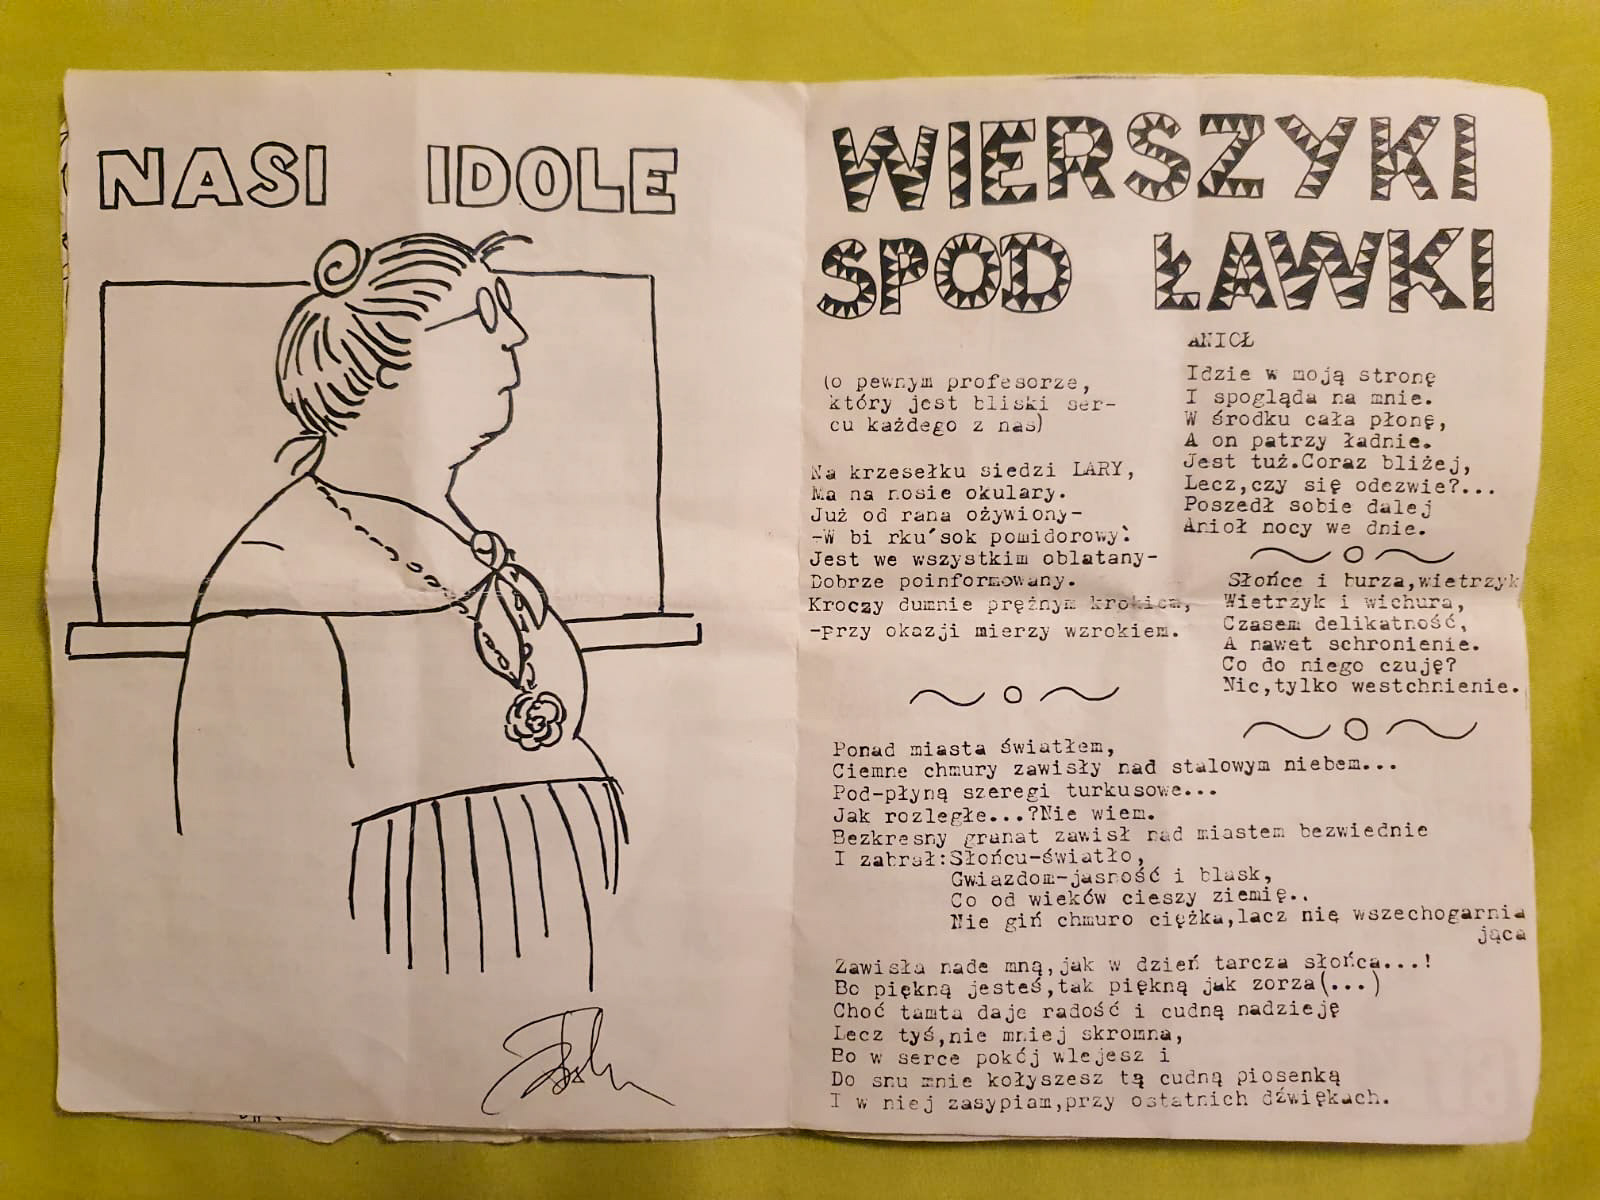 NASI IDOLE
WIERSZYKI
SPOD ŁAWKI
(o pewnym profesorze,
który jest bliski ser-
cu każdego z nas)
Na krzesełku siedzi LARY,
Ma na nosie okulary.
Już od rana ożywiony-
-W bi rku'sok pomidorowy:
Jest we wszystkim oblatany-
Dobrze poinformowany.
Kroczy dumnie prężnym krokiem,
-przy okazji mierzy wzrokiem.
ANIOŁ
Idzie w moją stronę
I spogląda na mnie.
W środku cała płonę,
A on patrzy ładnie.
Jest tuż.Coraz bliżej,
Lecz,czy się odezwie?...
Poszedł sobie dalej
Anioł nocy we dnie.
Słońce i burza,wietrzyk
Wietrzyk i wichura,
Czasem delikatność,
A nawet schronienie.
Co do niego czuję?
Nic,tylko westchnienie.
Ponad miasta światłem,
Ciemne chmury zawisły nad stalowym niebem...
Pod-płyną szeregi turkusowe...
Jak rozległe...?Nie wiem.
Bezkresny granat zawisł nad miastem bezwiednie
I zabrał:Słońcu-światło,
Gwiazdom-jasność i blask,
Co od wieków cieszy ziemię..
Nie giń chmuro ciężka,lacz nię wszechogarnia
jąca
Zawisła nade mną,jak w dzień tarcza słońca...!
Bo piękną jesteś,tak piękną jak zorza(...)
Choć tamta daje radość i cudną nadzieję
Lecz tyś,nie mniej skromna,
Bo w serce pokój wlejesz i
Do snu mnie kołyszesz tą cudną piosenką
I w niej zasypiam,przy ostatnich dźwiękach.